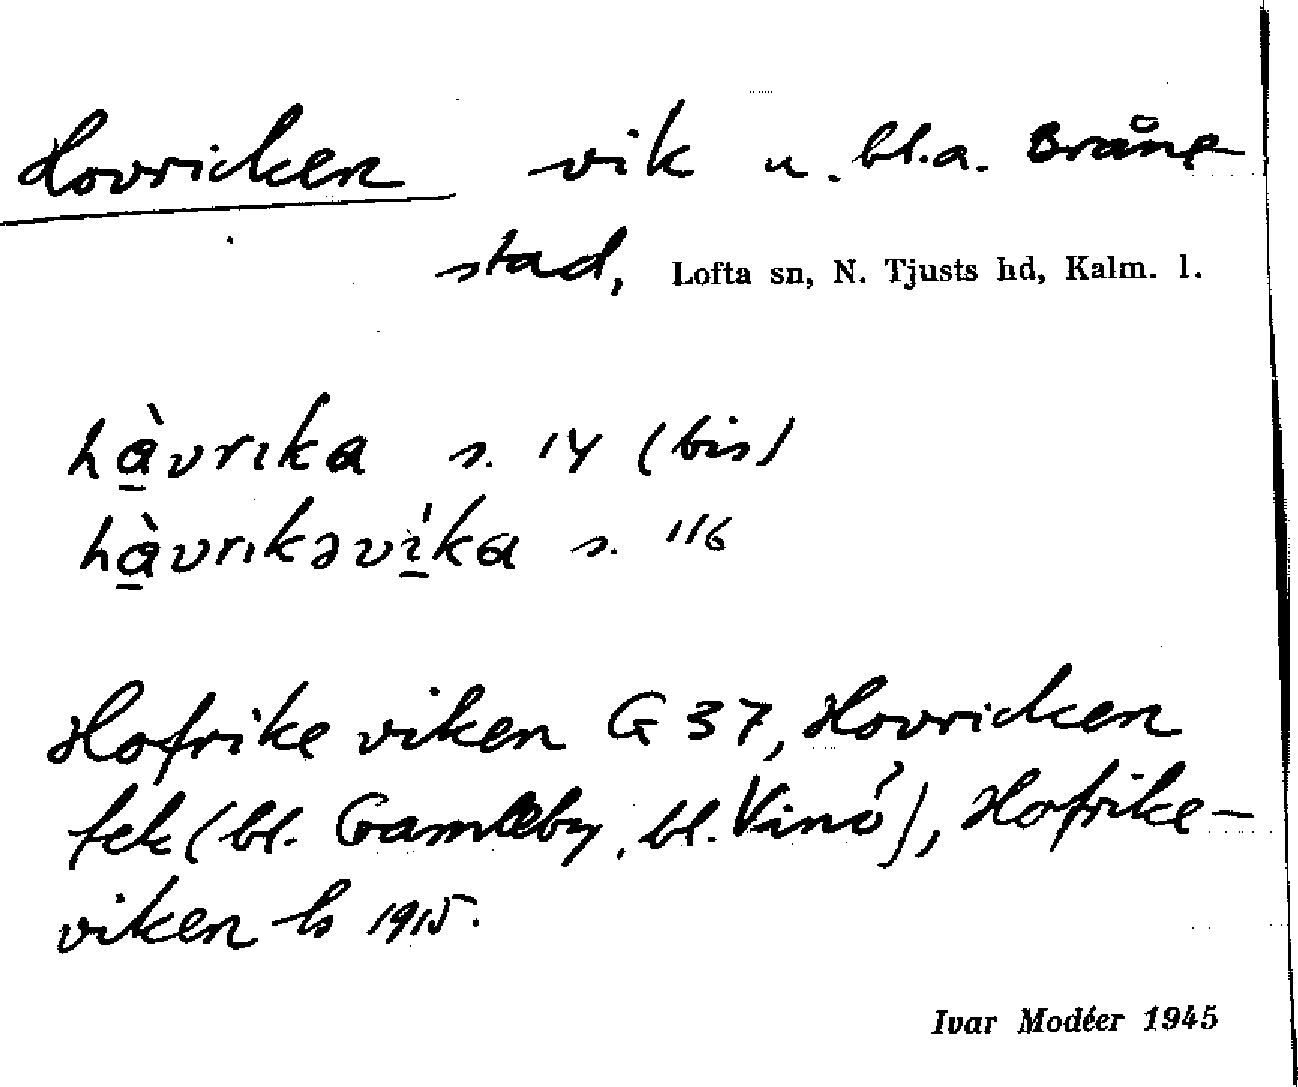 Hovricken vik u. bl.a. Bråne-
stad, Lofta sn, N. Tjusts hd, Kalm. l.
hàvrıka s. 14 (bis)
hàvrıkəvíka s. 116
Hofrike viken G 37, Hovricken
fek (bl. Gamleby, bl. Vinö), Hofrike-
viken ls 1915.
Ivar Modéer 1945